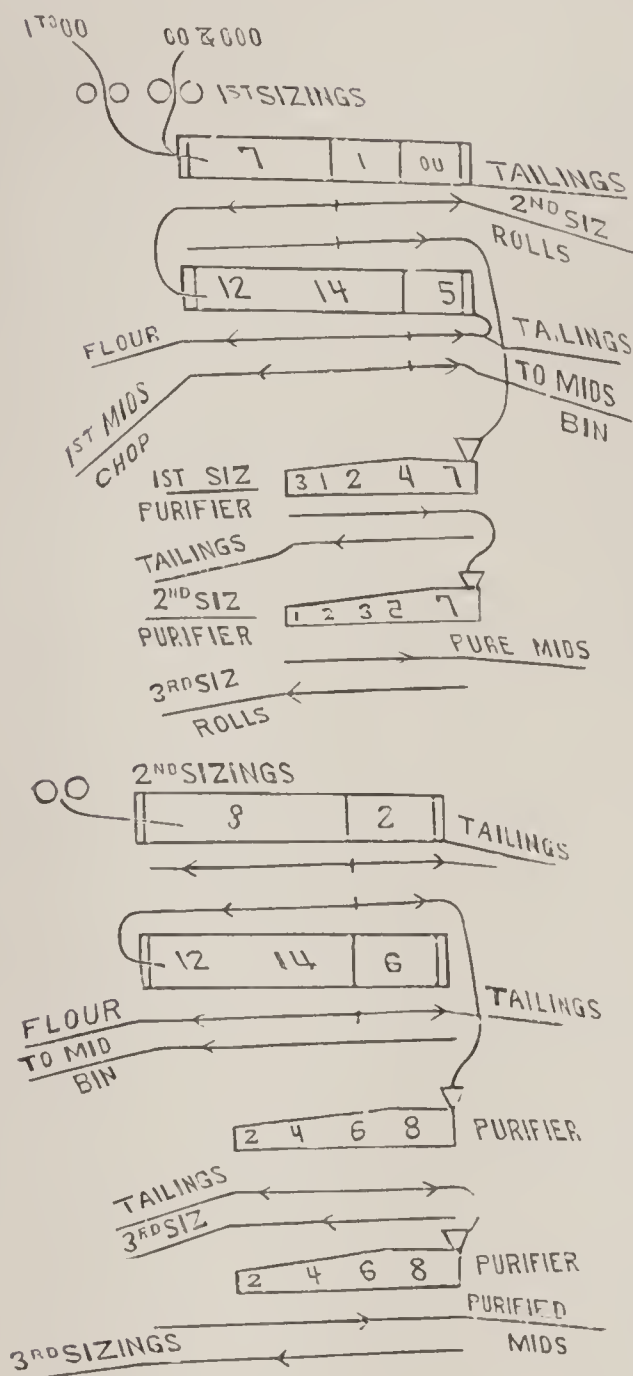 1 TO 00
00 & 000
1ST SIZINGS
7 1 OU
TAILINGS
2ND SIZ
ROLLS
12 14 5
FLOUR
TA.LINGS
1ST MIDS
CHOP
TO MIDS
BIN
1ST SIZ
PURIFIER
3 1 2 4 7
TAILINGS
2ND SIZ
PURIFIER
1 2 3 2 7
PURE MIDS
3RD SIZ
ROLLS
2ND SIZINGS
9 2
TAILINGS
12 14 6
FLOUR
TAILINGS
TO MID
BIN
2 4 6 8
PURIFIER
TAILINGS
3RD SIZ
2 4 6 8
PURIFIER
PURIFIED
MIDS
3RD SIZINGS